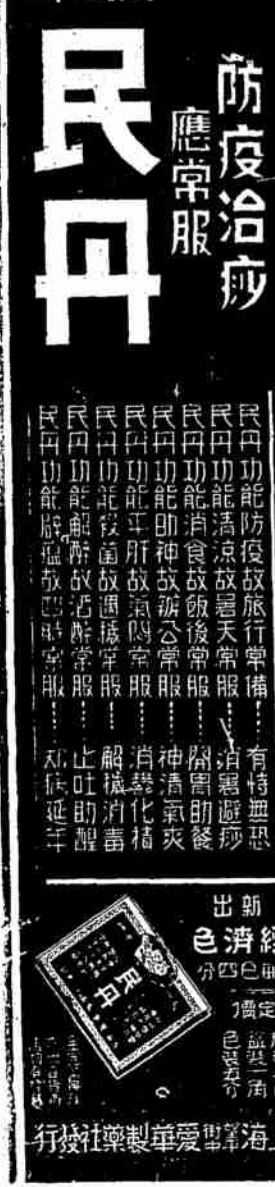 防疫治痧
應常服
民丹
民丹功能防疫故旅行常備……有恃無恐
民丹功能清涼故暑天常服……消暑避痧
民丹功能消食故飯後常服……開胃助餐
民丹功能助神故辦公常服……神清氣爽
民丹功能平肝故氣悶常服……消鬱化積
民丹功能殺菌故遇穢常服……解穢消毒
民丹功能解醉故酒醉常服……止吐助醒
民丹功能辟瘟故四時常服……却病延年
新出
經濟色
色四分
定價
盒裝一角
色裝五分
民丹
海望平街中愛華製藥社發行